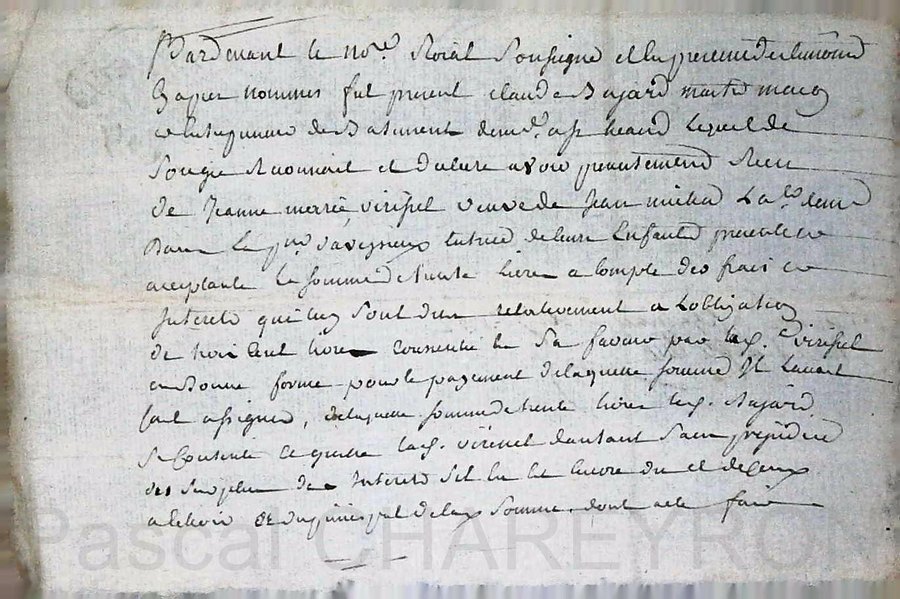 Pardevant le no.re Roial Sousigné et En presence des temoins
Cy apres nommés fut present Claude Bajard maitre macon
et Entrepreneur de Batiment demt. a St heand Lequel de
Son gré Reconnoit et declare avoir presentement Receu
de Jeanne marie virissel veuve de Jean milia Lab.r dem.t
Dans Le tutrice de leurs Enfants presente et
acceptante La somme de trente livres a Compte des frais et
Interets qui luy sont deus relativement a Lobligation
de trois Cent livres Consentie En Sa faveur par lad. virissel
en Bonne forme pour le payement de laquelle somme Il Lauroit
fait assigner, de laquelle somme de trente livres led. Bajard
Se Contente Et quitte lad. virissel dautant Sans prejudice
des Surplus des Interets Sil luy En Encore du et de Ceux
a Echoir Et du principal de lad. Somme, dont acte fait
Pascal CHAREYRON